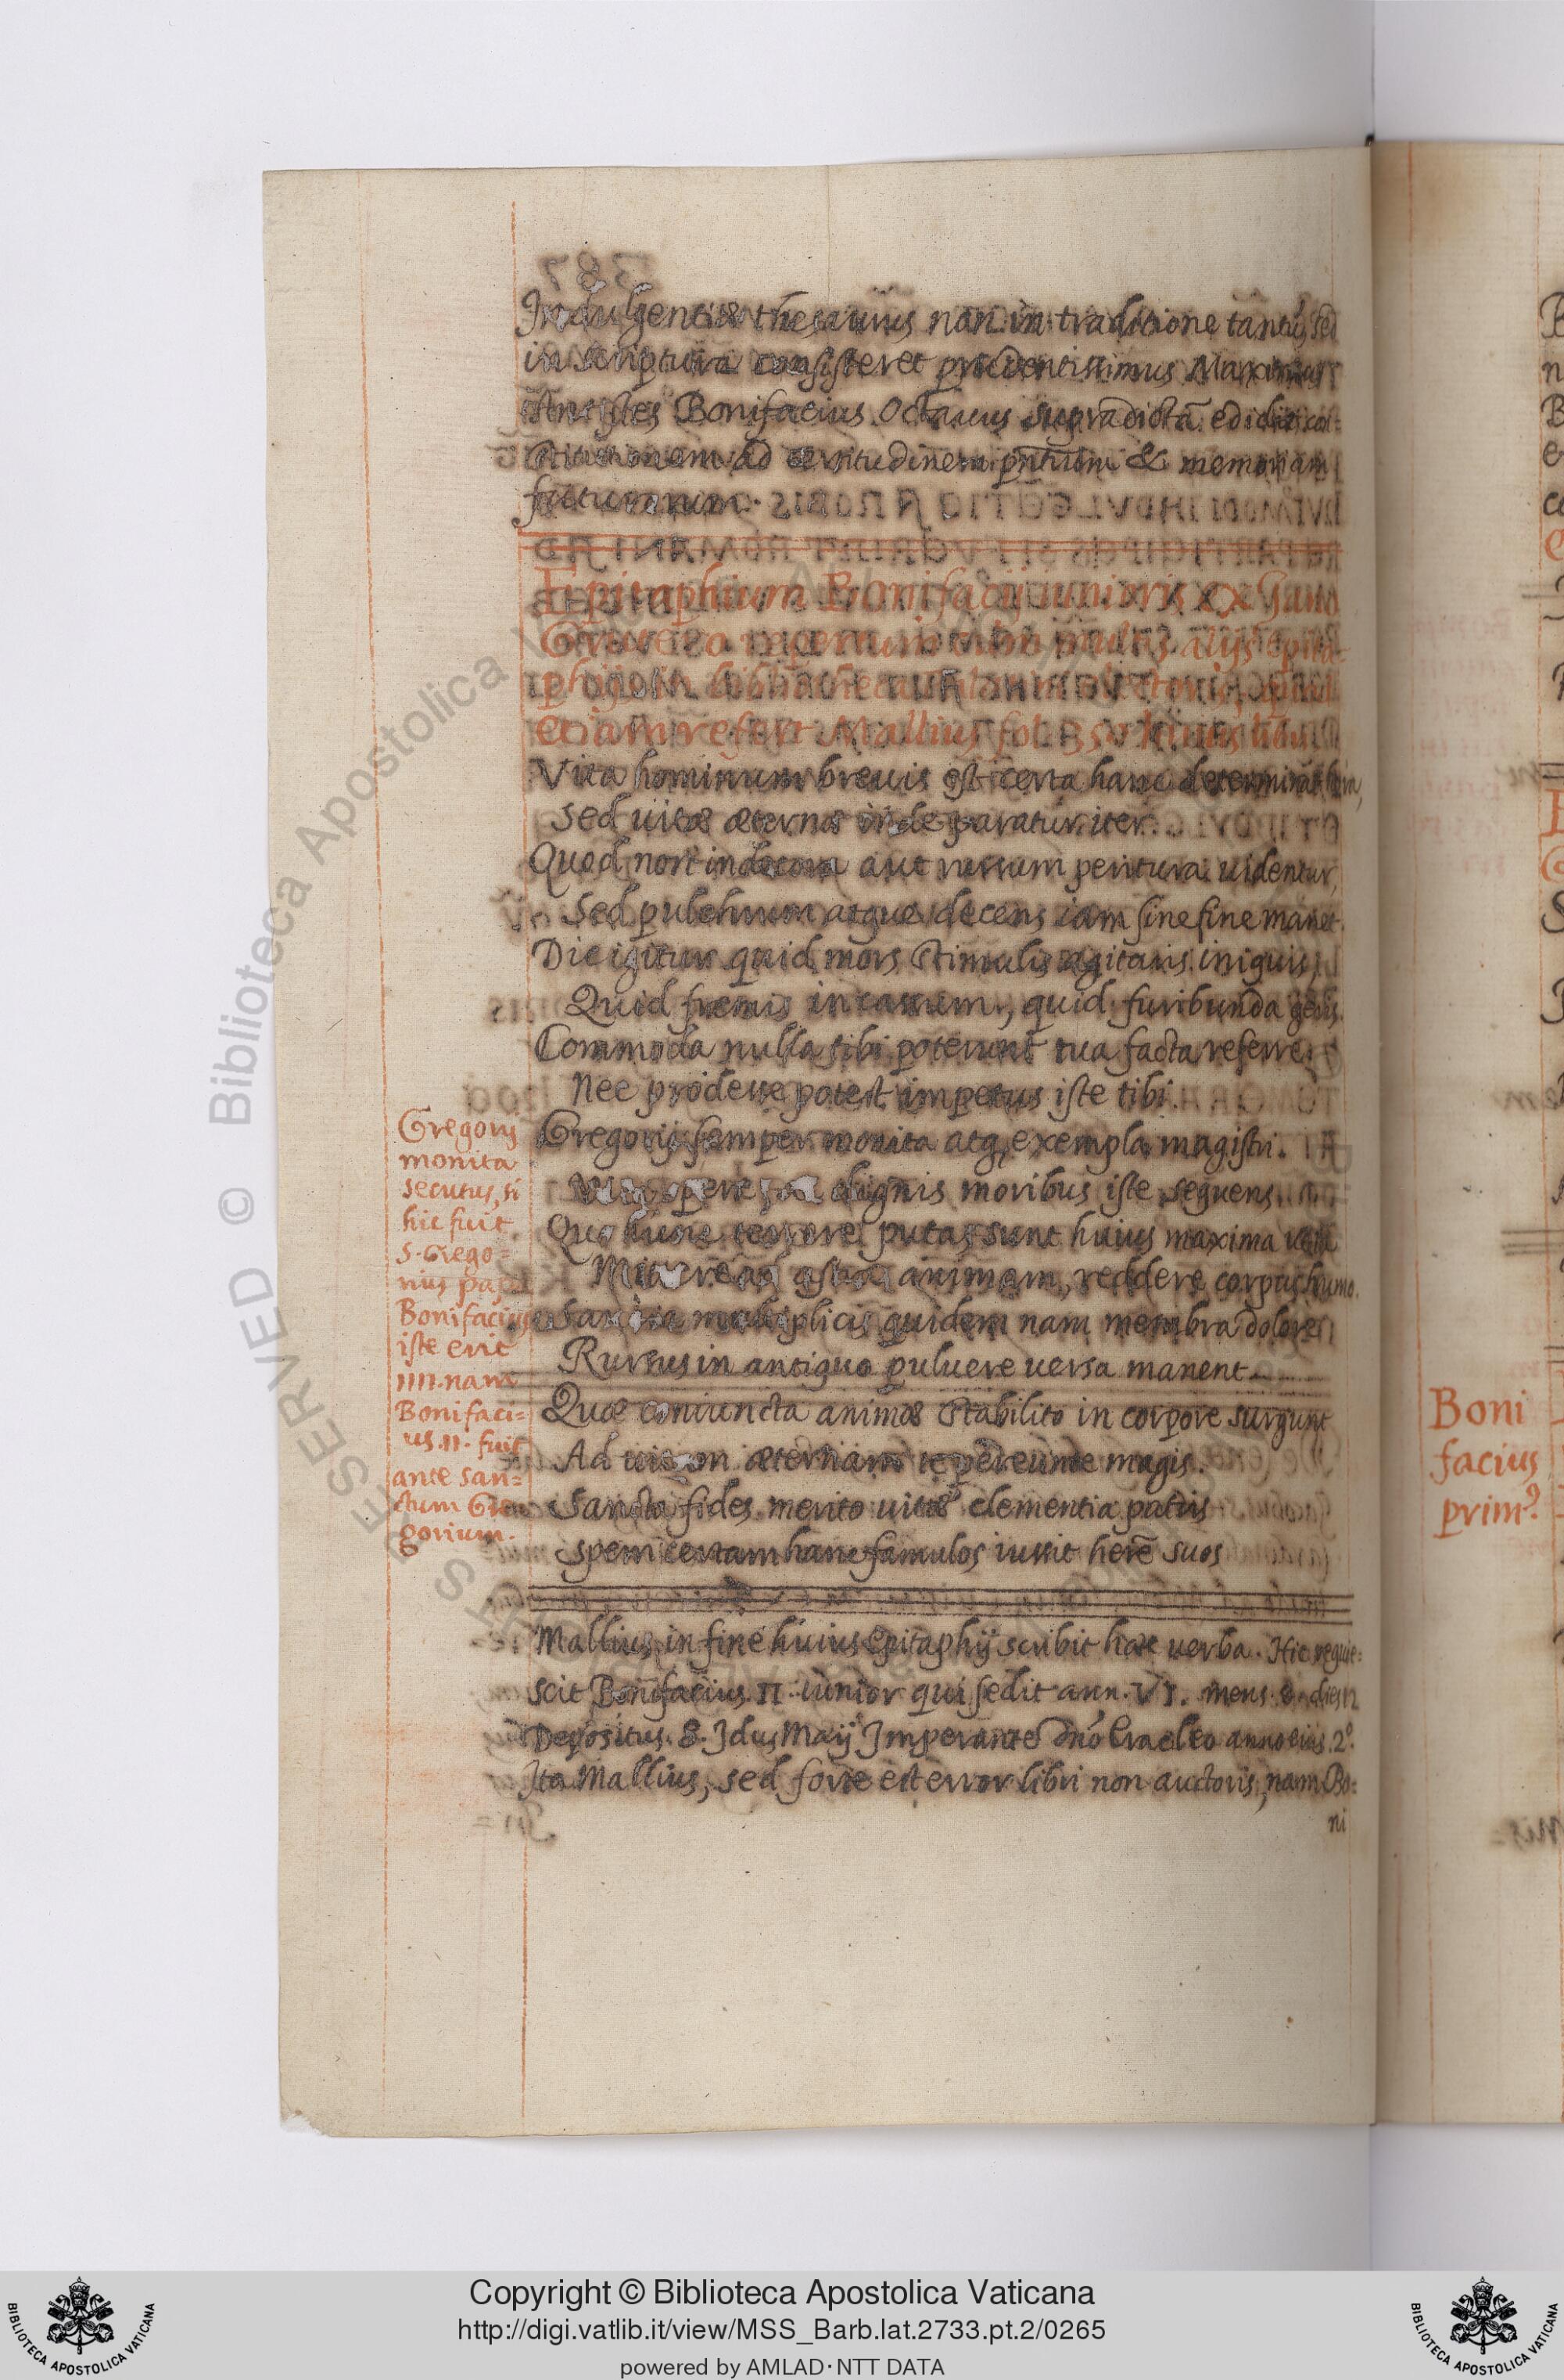 Indulgentiæ thesaurus non in traditione tantũ, sed
in scriptura consisteret prudentissimus Maximus
Antistes Bonifacius Octauus supradictã edidit con=
ad certitudinem pñtium & memoriam
futurorum.
Epitaphium Bonifacij iunioris
repertum cum multis alijs epita=
phijs in bibliotheca
etiam refert Mallius fol.
Vita hominum breuis est certa hanc determinat hora,
Sed uitæ æternæ inde paratur iter.
Quod non indecora aut rursum peritura uidentur,
Sed pulchrum atque decens iam sine fine manet.
Dic igitur quid mors stimulis agitaris iniquis,
Quid fremis incassum, quid furibunda geris.
Commoda nulla tibi poterunt tua facta referre
Nec prodesse potest impetus iste tibi.
Gregorij semper monita atq, exempla magistri.
dignis moribus iste sequens
Quo putas sunt huius maxima
Mit animam, reddere corpus humo.
multiplicis quidem nam membra dolore
Rursus in antiquo puluere uersa manent
Quæ coniuncta animæ stabilito in corpore surgunt
Ad æternam te pereunte magis.
Sancta fides merito uitæ clementia patris
spem certam hanc famulos iussit herẽ suos
Gregorij
monita
secutus, si
hic fuit
S. Grego=
rius papa
Bonifacius
iste erit
IIII. nam
Bonifaci=
us .II. fuit
ante San=
ctum Gre
gorium.
Mallius in fine huius Epitaphij scribit hæc uerba. Hic requie=
scit Bonifacius II iunior qui sedit ann. VI. mens. 8. dies 12
Depositus. 8. Idus Maij Imperante dño Eracleo anno eius. 2º.
Ita Mallius, sed forte est error libri non auctoris, nam Bo=
ni
Boni
facius
prim⁹
Copyright © Biblioteca Apostolica Vaticana
http://digi.vatlib.it/view/MSS_Barb.lat.2733.pt.2/0265
powered by AMLAD·NTT DATA
BIBLIOTECA APOSTOLICA VATICANA
BIBLIOTECA APOSTOLICA VATICANA